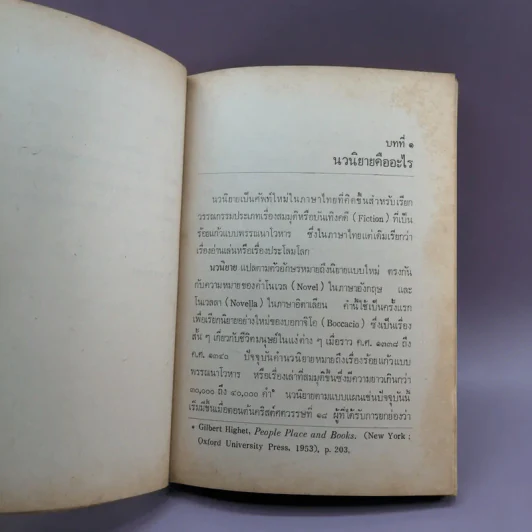 บทที่ ๑
นวนิยายคืออะไร
นวนิยายเป็นศัพท์ใหม่ในภาษาไทยที่คิดขึ้นสำหรับเรียก
วรรณกรรมประเภทเรื่องสมมุติหรือบันเทิงคดี (Fiction) ที่เป็น
ร้อยแก้วแบบพรรณนาโวหาร ซึ่งในภาษาไทยแต่เดิมเรียกว่า
เรื่องอ่านเล่นหรือเรื่องประโลมโลก
นวนิยาย แปลตามตัวอักษรหมายถึงนิยายแบบใหม่ ตรงกัน
กับความหมายของคำโนเวล (Novel) ในภาษาอังกฤษ และ
โนเวลลา (Novella) ในภาษาอิตาเลียน คำนี้ใช้เป็นครั้งแรก
เพื่อเรียกนิยายอย่างใหม่ของบอกาชิโอ (Boccacio) ซึ่งเป็นเรื่อง
สั้น ๆ เกี่ยวกับชีวิตมนุษย์ในแง่ต่าง ๆ เมื่อราว ค.ศ. ๑๓๓๘ ถึง
ค.ศ. ๑๓๔๐ ปัจจุบันคำนวนิยายหมายถึงเรื่องร้อยแก้วแบบ
พรรณนาโวหาร หรือเรื่องเล่าที่สมมุติขึ้นซึ่งมีความยาวเกินกว่า
๓๐,๐๐๐ ถึง ๔๐,๐๐๐ คำ* นวนิยายตามแบบแผนเช่นปัจจุบันนี้
เริ่มมีขึ้นเมื่อตอนต้นคริสต์ศตวรรษที่ ๑๘ ผู้ที่ได้รับการยกย่องว่า
* Gilbert Highet, People Place and Books. (New York :
Oxford University Press, 1953), p. 203.